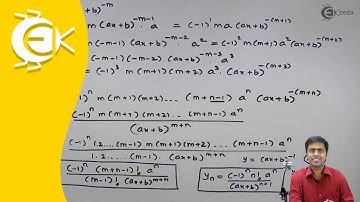 Ekeeda
+b)^{-m}
m(ax+b)^{-m-1} . a = (-1)^1 m a (ax+b)^{-(m+1)}
m(-m-1)(ax+b)^{-m-2} . a^2 = (-1)^2 m(m+1) a^2 (ax+b)^{-(m+2)}
(-m-1)(-m-2)(ax+b)^{-m-3} a^3
= (-1)^3 m(m+1)(m+2) a^3 . (ax+b)^{-(m+3)}
)^n m(m+1)(m+2)... (m+n-1) a^n (ax+b)^{-(m+n)}
(-1)^n m(m+1)(m+2)... (m+n-1) a^n
(ax+b)^{m+n}
(-1)^n 1.2...(m-1) m(m+1)(m+2)...(m+n-1) a^n
1.2....(m-1). (ax+b)^{m+n} y=
(-1)^n (m+n-1)! a^n
(m-1)! (ax+b)^{m+n}
y_n = (-1)^n n! a^n
(ax+b)^{n+1}